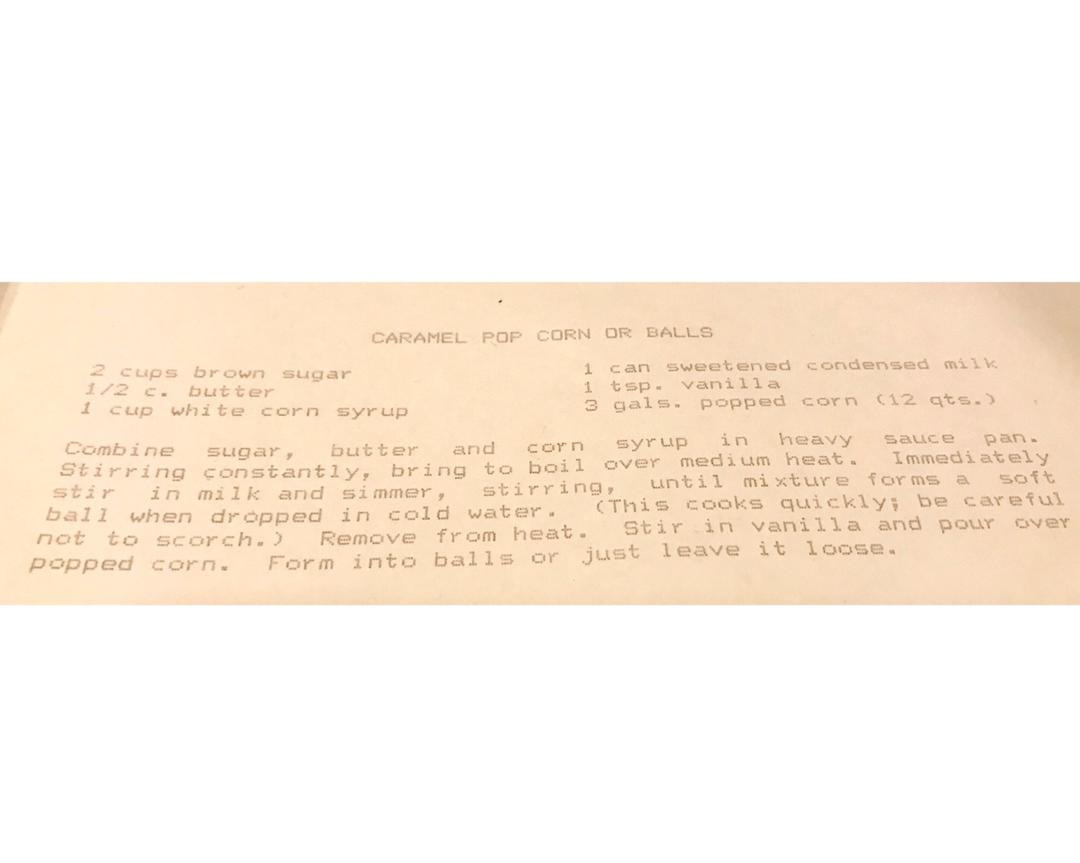 CARAMEL POP CORN OR BALLS
2 cups brown sugar 1 can sweetened condensed milk
1/2 c. butter 1 tsp. vanilla
1 cup white corn syrup 3 gals. popped corn (12 qts.)
Combine sugar, butter and corn syrup in heavy sauce pan.
Stirring constantly, bring to boil over medium heat. Immediately
stir in milk and simmer, stirring, until mixture forms a soft
ball when dropped in cold water. (This cooks quickly; be careful
not to scorch.) Remove from heat. Stir in vanilla and pour over
popped corn. Form into balls or just leave it loose.